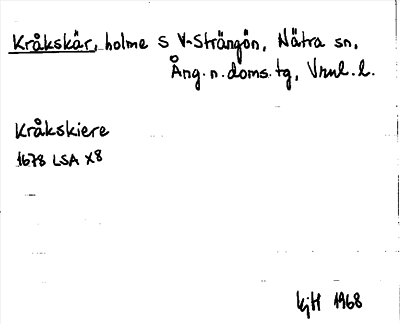 Kråkskär, holme S V-Strängön, Nätra sn,
Ång. n. doms. tg, Vnrl. l.
Kråkskiere
1678 LSA X8
KjH 1968